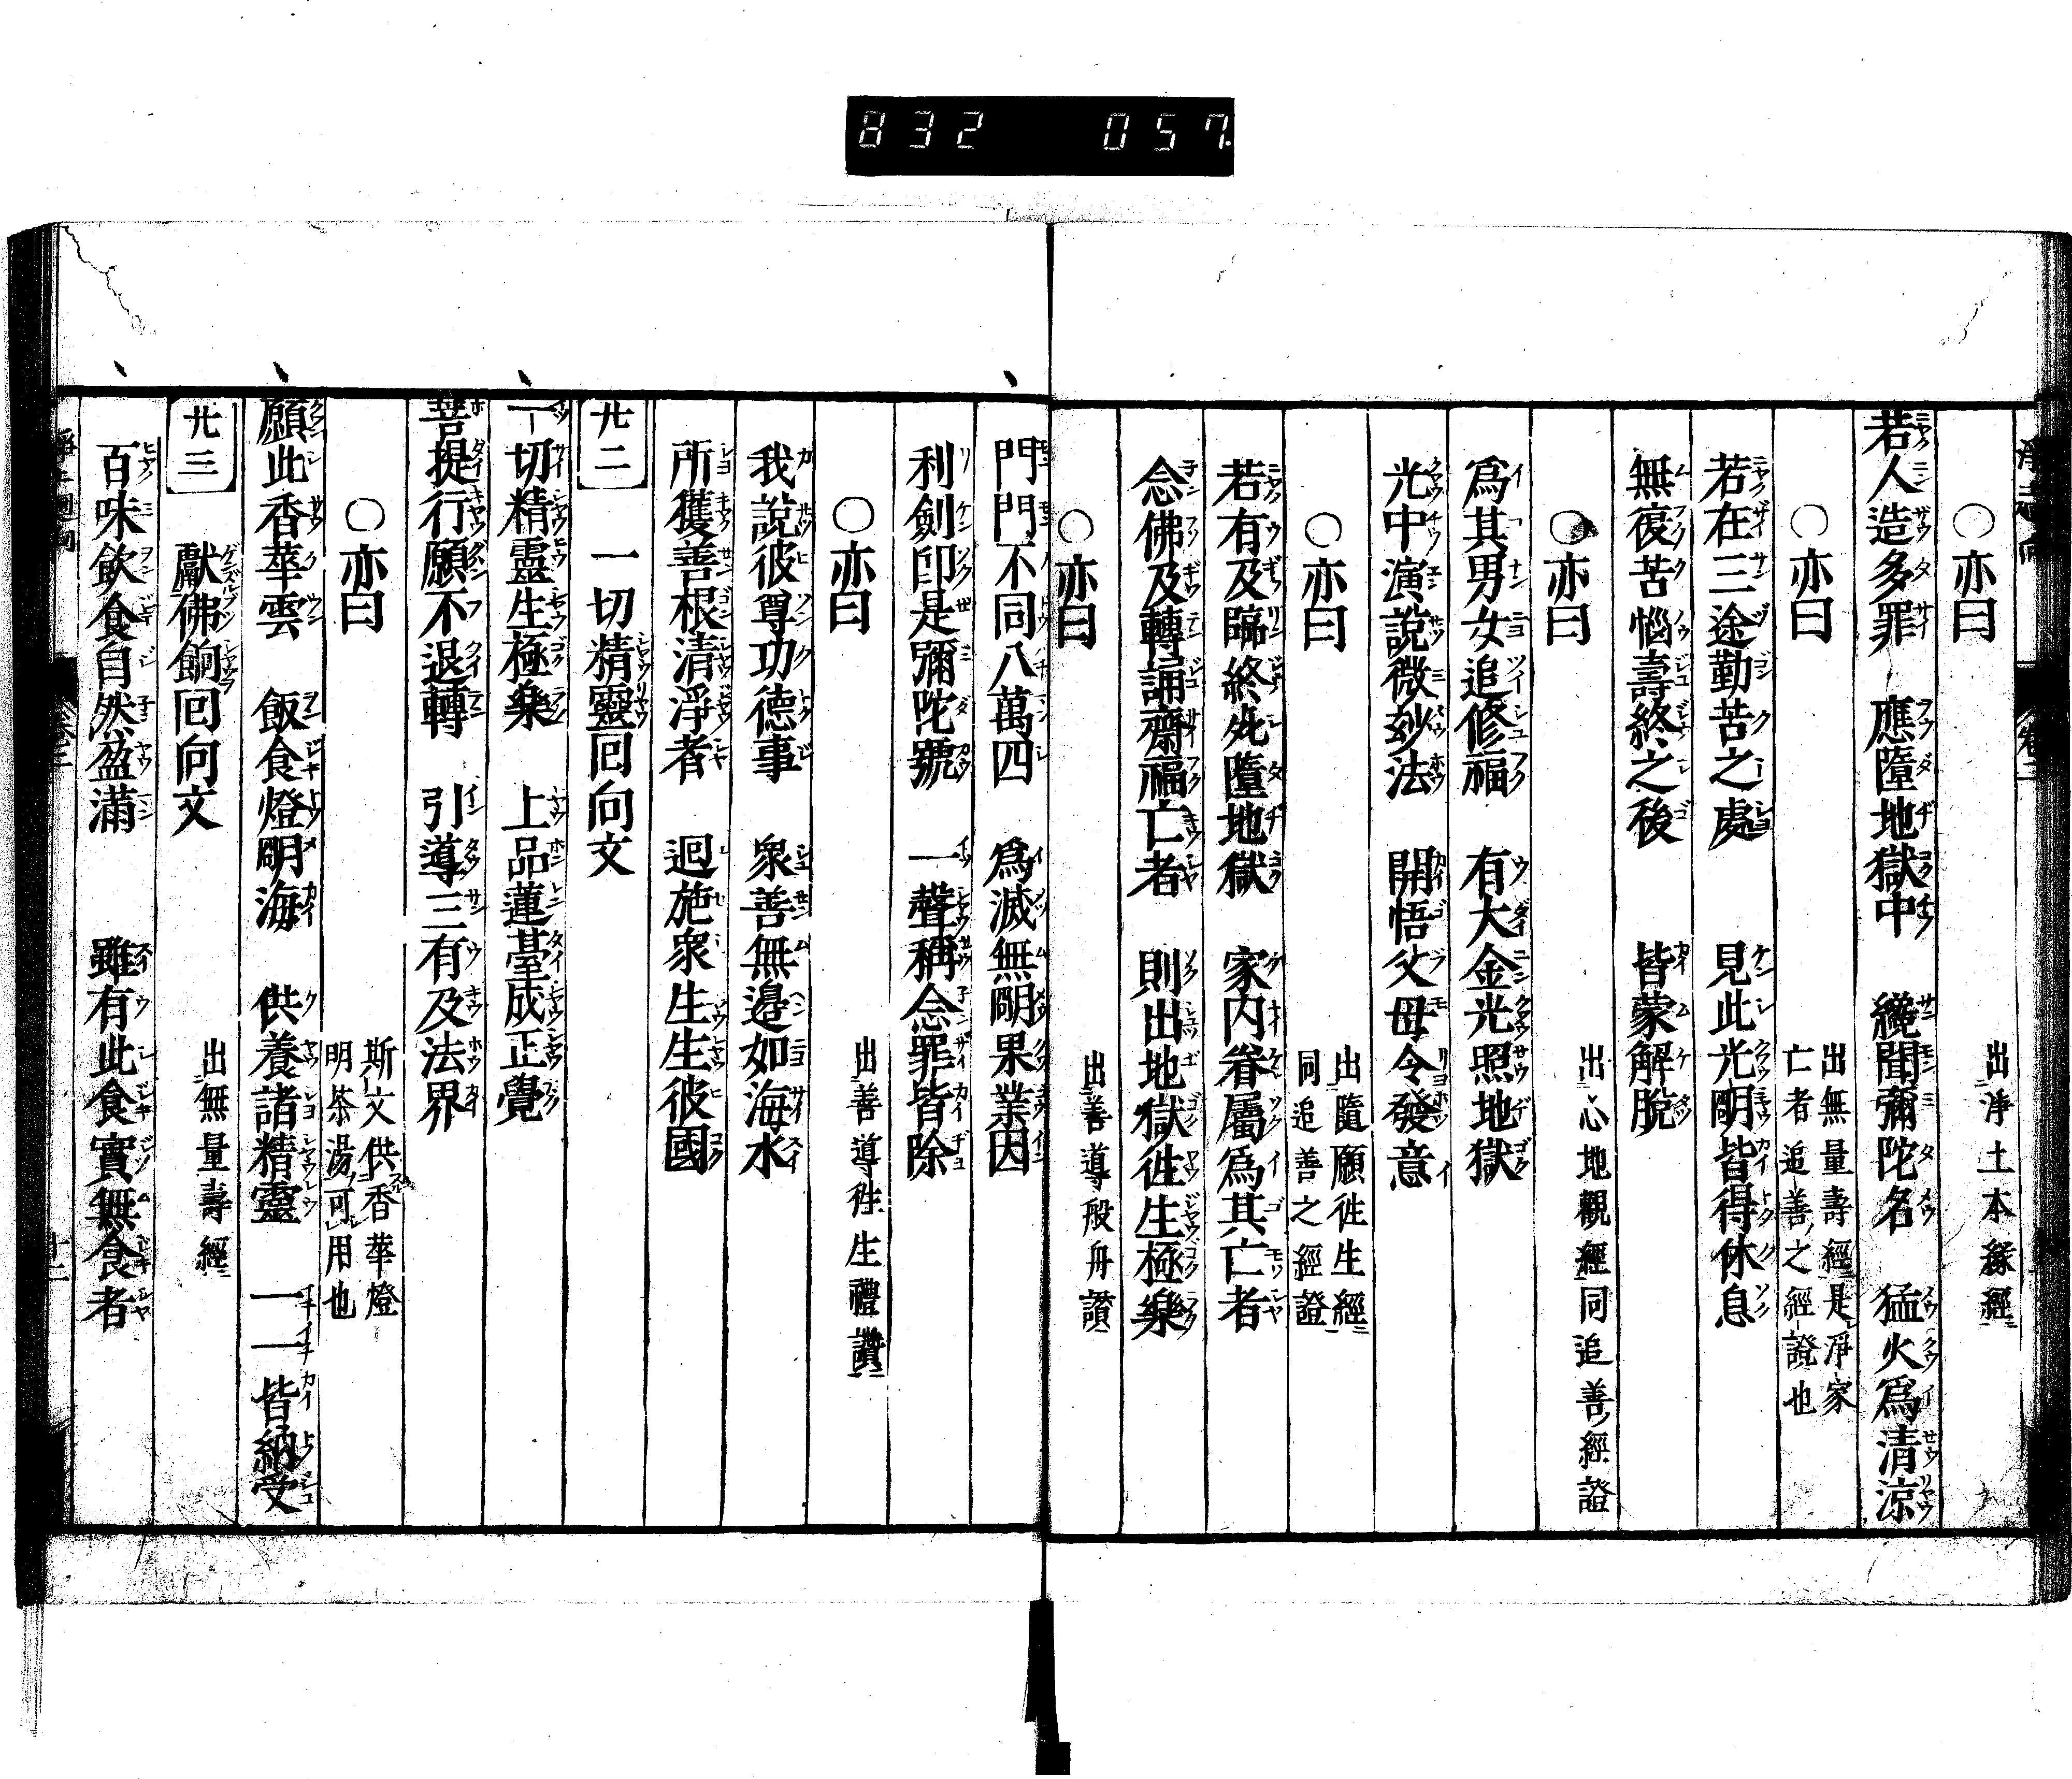 832 057
○亦曰 出淨土本緣經
若人造多罪 應墮地獄中 纔聞彌陀名 猛火爲清涼
○亦曰 出無量壽經是淨家
亡者追善之經證也
若在三途勤苦之處 見此光明皆得休息
無復苦惱壽終之後 皆蒙解脫
○亦曰 出心地觀經同追善經證
爲其男女追修福 有大金光照地獄
光中演說微玅法 開悟父母令發意
○亦曰 出隨願往生經
同追善之經證
若有及臨終死墮地獄 家内眷屬爲其亡者
念佛及轉誦齋福亡者 則出地獄往生極樂
○亦曰 出善導般舟讃
門門不同八萬四 爲滅無明果業因
利劍卽是彌陀號 一聲稱念罪皆除
○亦曰 出善導往生禮讃
我說彼尊功德事 衆善無邊如海水
所獲善根清淨者 迴施衆生生彼國
廿二 一切精靈回向文
一切精靈生極樂 上品蓮臺成正覺
菩提行願不退轉 引導三有及法界
○亦曰 斯文供香華燈
明茶湯可用也
願此香華雲 飯食燈明海 供養諸精靈 一一皆納受
廿三 獻佛餉回向文 出無量壽經
百味飲食自然盈滿 雖有此食實無食者